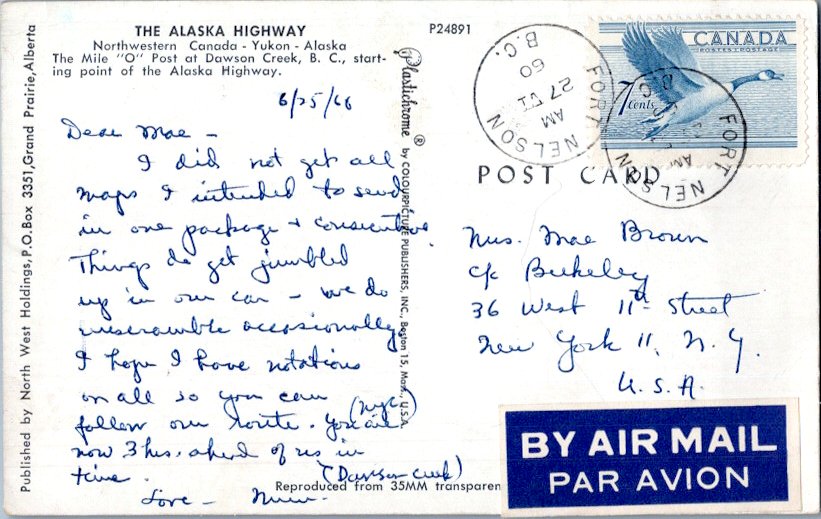 THE ALASKA HIGHWAY
Northwestern Canada - Yukon - Alaska
The Mile "O" Post at Dawson Creek, B. C., start-
ing point of the Alaska Highway.
P24891
6/25/60
Dear Mae -
I did not get all
maps I intended to send
in one package + consecutive.
Things do get jumbled
up in our car - we do
unscramble occasionally
I hope I have notations
on all so you can
follow our route. You are (NYC)
now 3 hrs. ahead of us in
time. (Dawson Creek)
Love -
Published by North West Holdings, P.O. Box 3351, Grand Prairie, Alberta
Plastichrome ® by COLOURPICTURE PUBLISHERS, INC., Boston 15, Mass., U.S.A.
Reproduced from 35MM transparen
POST CARD
FORT NELSON
B.C.
AM
27 VI
60
CANADA
POSTES POSTAGE
7 cents
FORT NELSON
B.C.
AM
Mrs. Mae Brown
c/o Berkeley
36 West 11th Street
New York 11, N.Y.
U.S.A.
BY AIR MAIL
PAR AVION